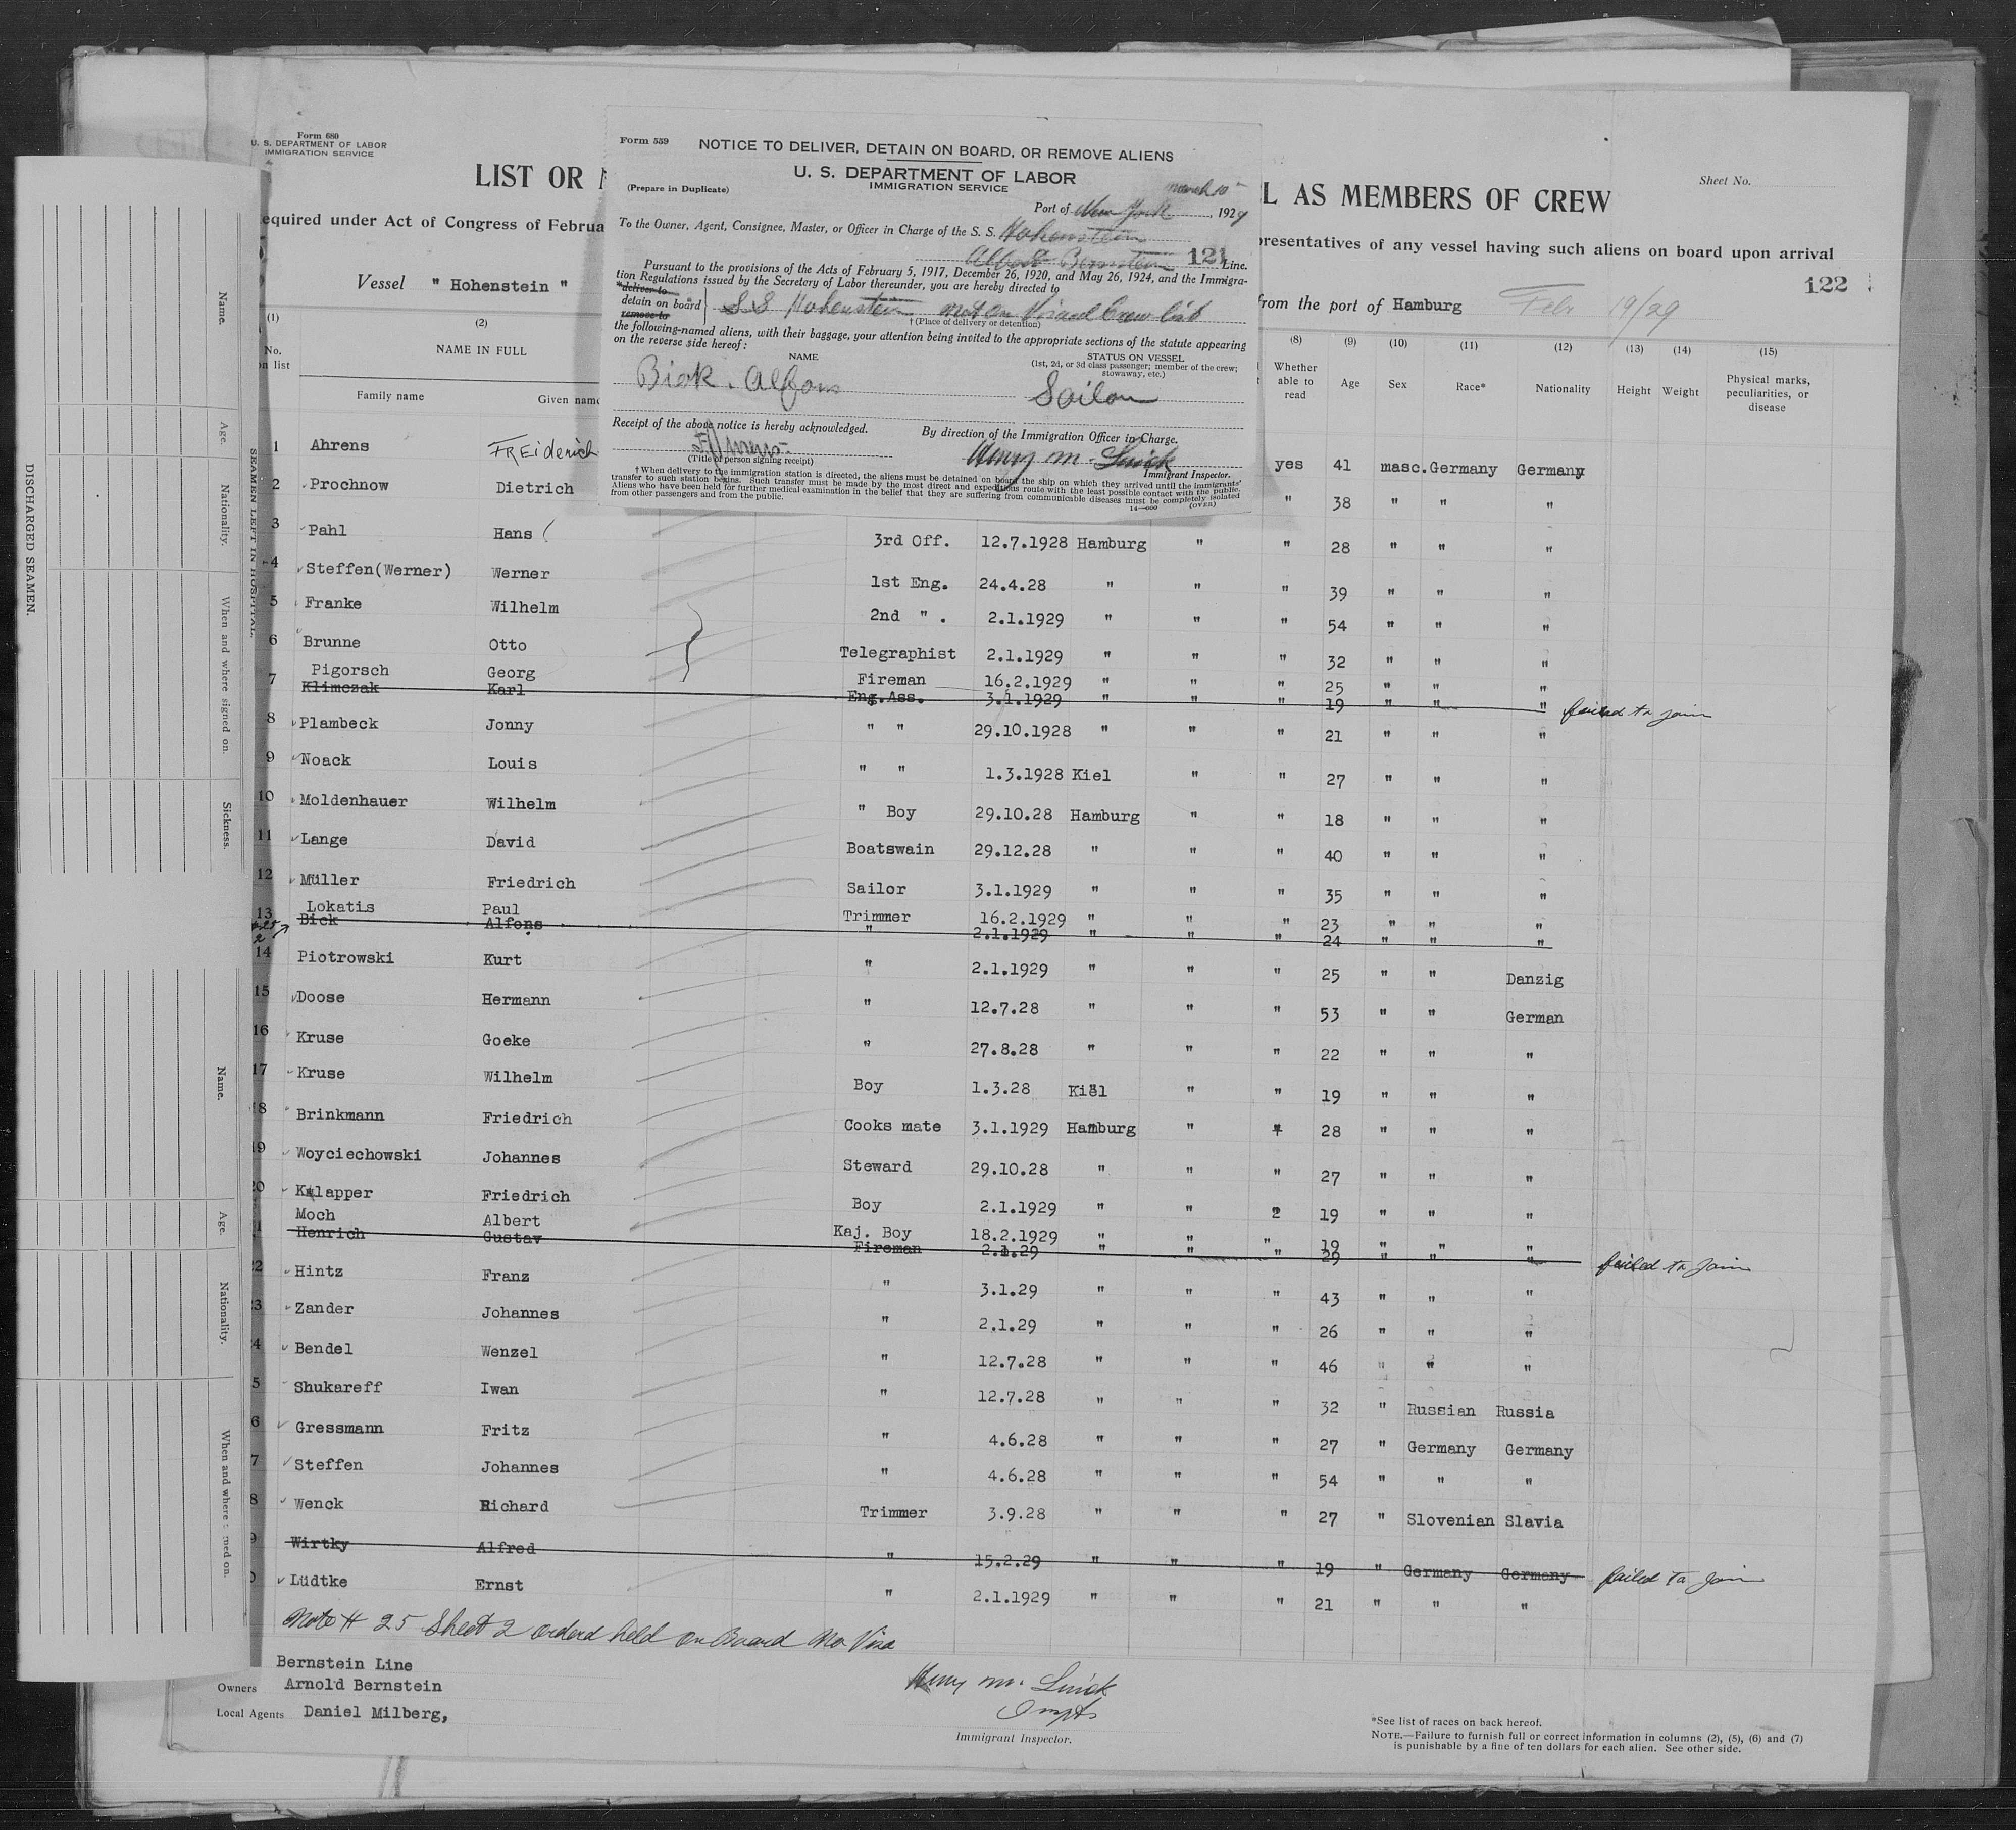 Form 680
U. S. DEPARTMENT OF LABOR
IMMIGRATION SERVICE
LIST OR
L AS MEMBERS OF CREW
Sheet No.
equired under Act of Congress of Februa
presentatives of any vessel having such aliens on board upon arrival
Vessel " Hohenstein "
from the port of Hamburg Feb 19/29
122
Form 559
NOTICE TO DELIVER, DETAIN ON BOARD, OR REMOVE ALIENS
U. S. DEPARTMENT OF LABOR
IMMIGRATION SERVICE
(Prepare in Duplicate)
March 10
Port of New York, 1929
To the Owner, Agent, Consignee, Master, or Officer in Charge of the S. S. Hohenstein
Bernstein 121 Line.
Pursuant to the provisions of the Acts of February 5, 1917, December 26, 1920, and May 26, 1924, and the Immigra-
tion Regulations issued by the Secretary of Labor thereunder, you are hereby directed to
*deliver to
detain on board SS Hohenstein not on Visaed Crew list
remove to
†(Place of delivery or detention)
the following-named aliens, with their baggage, your attention being invited to the appropriate sections of the statute appearing
on the reverse side hereof:
NAME
STATUS ON VESSEL
(1st, 2d, or 3d class passenger; member of the crew; stowaway, etc.)
Bick. Alfons
Sailor
Receipt of the above notice is hereby acknowledged.
By direction of the Immigration Officer in Charge.
Henry M. Linick
(Title of person signing receipt)
Immigrant Inspector.
†When delivery to the immigration station is directed, the aliens must be detained on board the ship on which they arrived until the immigrants'
transfer to such station begins. Such transfer must be made by the most direct and expeditious route with the least possible contact with the public.
Aliens who have been held for further medical examination in the belief that they are suffering from communicable diseases must be completely isolated
from other passengers and from the public.
14—600 (OVER)
(1) (2) (8) (9) (10) (11) (12) (13) (14) (15)
No. on list
NAME IN FULL
Family name
Given name
Whether able to read
Age
Sex
Race*
Nationality
Height
Weight
Physical marks, peculiarities, or disease
1 Ahrens FREiderich yes 41 masc. Germany Germany
2 Prochnow Dietrich " 38 " " "
3 Pahl Hans 3rd Off. 12.7.1928 Hamburg " " 28 " " "
4 Steffen(Werner) Werner 1st Eng. 24.4.28 " " " 39 " " "
5 Franke Wilhelm 2nd " . 2.1.1929 " " " 54 " " "
6 Brunne Otto Telegraphist 2.1.1929 " " " 32 " " "
Pigorsch Georg Fireman 16.2.1929 " " " 25 " " "
7 Klimczak Karl Eng.Ass. 3.1.1929 " " " 19 " " " failed to join
8 Plambeck Jonny " " 29.10.1928 " " " 21 " " "
9 Noack Louis " " 1.3.1928 Kiel " " 27 " " "
10 Moldenhauer Wilhelm " Boy 29.10.28 Hamburg " " 18 " " "
11 Lange David Boatswain 29.12.28 " " " 40 " " "
12 Müller Friedrich Sailor 3.1.1929 " " " 35 " " "
Lokatis Paul Trimmer 16.2.1929 " " " 23 " " "
13 Bick Alfons " 2.1.1929 " " " 24 " " "
14 Piotrowski Kurt " 2.1.1929 " " " 25 " " Danzig
15 Doose Hermann " 12.7.28 " " " 53 " " German
16 Kruse Goeke " 27.8.28 " " " 22 " " "
17 Kruse Wilhelm Boy 1.3.28 Kiel " " 19 " " "
18 Brinkmann Friedrich Cooks mate 3.1.1929 Hamburg " " 28 " " "
19 Woyciechowski Johannes Steward 29.10.28 " " " 27 " " "
20 Klapper Friedrich Boy 2.1.1929 " " " 19 " " "
Moch Albert Kaj. Boy 18.2.1929 " " " 19 " " "
1 Henrich Gustav Fireman 2.1.29 " " " 29 " " " failed to join
22 Hintz Franz " 3.1.29 " " " 43 " " "
23 Zander Johannes " 2.1.29 " " " 26 " " "
24 Bendel Wenzel " 12.7.28 " " " 46 " " "
5 Shukareff Iwan " 12.7.28 " " " 32 " Russian Russia
6 Gressmann Fritz " 4.6.28 " " " 27 " Germany Germany
7 Steffen Johannes " 4.6.28 " " " 54 " " "
8 Wenck Richard Trimmer 3.9.28 " " " 27 " Slovenian Slavia
9 Wirtky Alfred " 15.2.29 " " " 19 " Germany Germany failed to join
0 Lüdtke Ernst " 2.1.1929 " " " 21 " " "
Note # 25 Sheet 2 orderd held on Board No Visa
Bernstein Line
Owners Arnold Bernstein
Local Agents Daniel Milberg,
Henry M. Linick
Immigrant Inspector.
*See list of races on back hereof.
NOTE.—Failure to furnish full or correct information in columns (2), (5), (6) and (7)
is punishable by a fine of ten dollars for each alien. See other side.
DISCHARGED SEAMEN.
SEAMEN LEFT IN HOSPITAL.
Name.
Age.
Nationality.
When and where signed on.
Sickness.
Name.
Age.
Nationality.
When and where signed on.